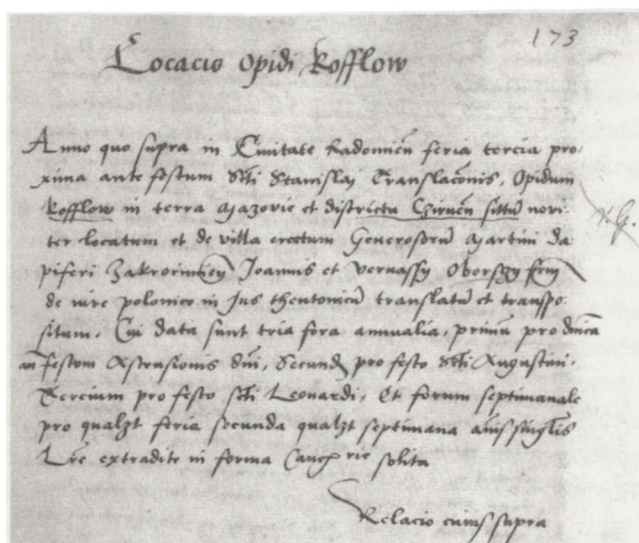 173
Locacio opidi Rosslow
Anno quo supra in Civitate Radomien feria tercia pro-
xima ante festum Scti Stanislaj Translacōnis, Opidum
Rosslow in terra Mazovie et districtu Czirnēn sittū novi-
v. G.
ter locatum et de villa erectum Generosorū Martini da
piferi Zakroczimien Joannis et Oborsky frm
de iure polonico in Jus theutonicū translatū et transpo-
situm. Cui data sunt tria fora annualia, primū pro dnīca
an festum Ascensionis dnī, Secund pro festo Scti Augustini,
Tercium pro festo scti Leonardi, Et forum septimanale
pro qualzt feria secunda qualzt septimana
Lrē extradite in forma Canc rie solita
Relacio cuius supra